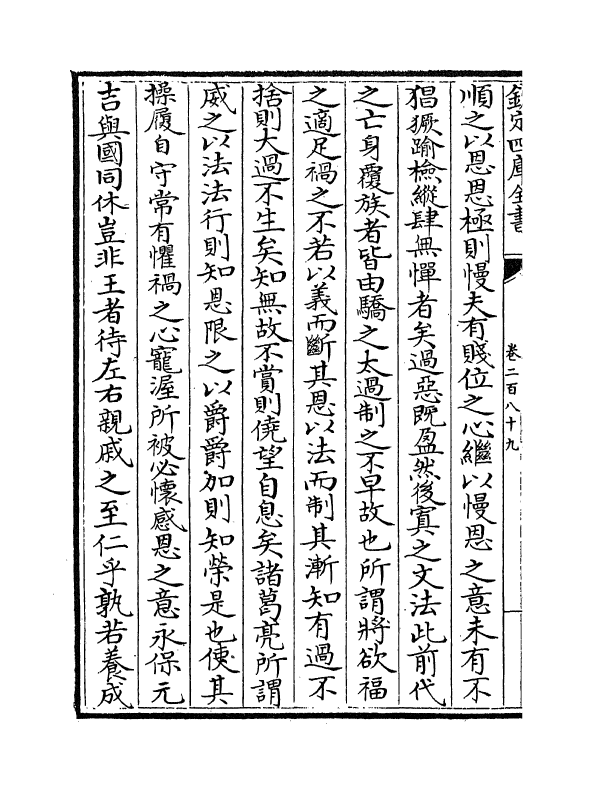 欽定四庫全書
卷二百八十九
順之以恩恩極則慢夫有賤位之心繼以慢恩之意未有不
猖獗踰檢縱肆無憚者矣過惡既盈然後寘之文法此前代
之亡身覆族者皆由驕之太過制之不早故也所謂將欲福
之適足禍之不若以義而斷其恩以法而制其漸知有過不
捨則大過不生矣知無故不賞則僥望自息矣諸葛亮所謂
威之以法法行則知恩限之以爵爵加則知榮是也使其
操履自守常有懼禍之心寵渥所被必懷感恩之意永保元
吉與國同休豈非王者待左右親戚之至仁乎孰若養成